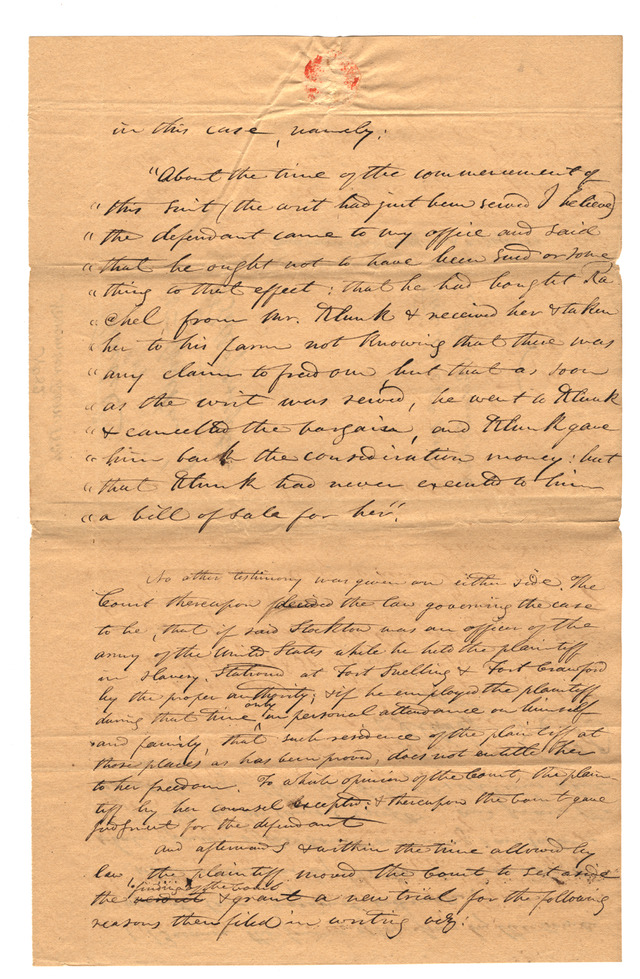 in this case, namely:
"About the time of the commencement of
" this suit (the writ had just been served I believe)
" the defendant came to my office and said
" that he ought not to have been sued or some
" thing to that effect: that he had bought Ra
" chel, from Mr. Klunk & received her & taken
" her to his farm not knowing that there was
" any claim to freedom, but that as soon
" as the writ was served, he went to Klunk
" & canceled the bargain, and Klunk gave
" him back the consideration money: but
" that Klunk had never executed to him
" a bill of sale for her".
No other testimony was given on either side. The
Court thereupon the law governing the case
to be, that if said Stockton was an officer of the
army of the United States while he held the plaintiff
in slavery, Stationed at Fort Snelling & Fort Crawford
by the proper authority; & if he employed the plaintiff
during that time, only in personal attendance on himself
and family, that such residence of the plaintiff at
those places as has been proved, does not entitle her
to her freedom. To which opinion of the Court, the plain-
tiff by her counsel excepts: & thereupon the Court gave
judgment for the defendant
and afterwards & within the time allowed by
law, the plaintiff moved the Court to set aside
the finding of the Court verdict & grant a new trial for the following
reasons then filed in writing viz: